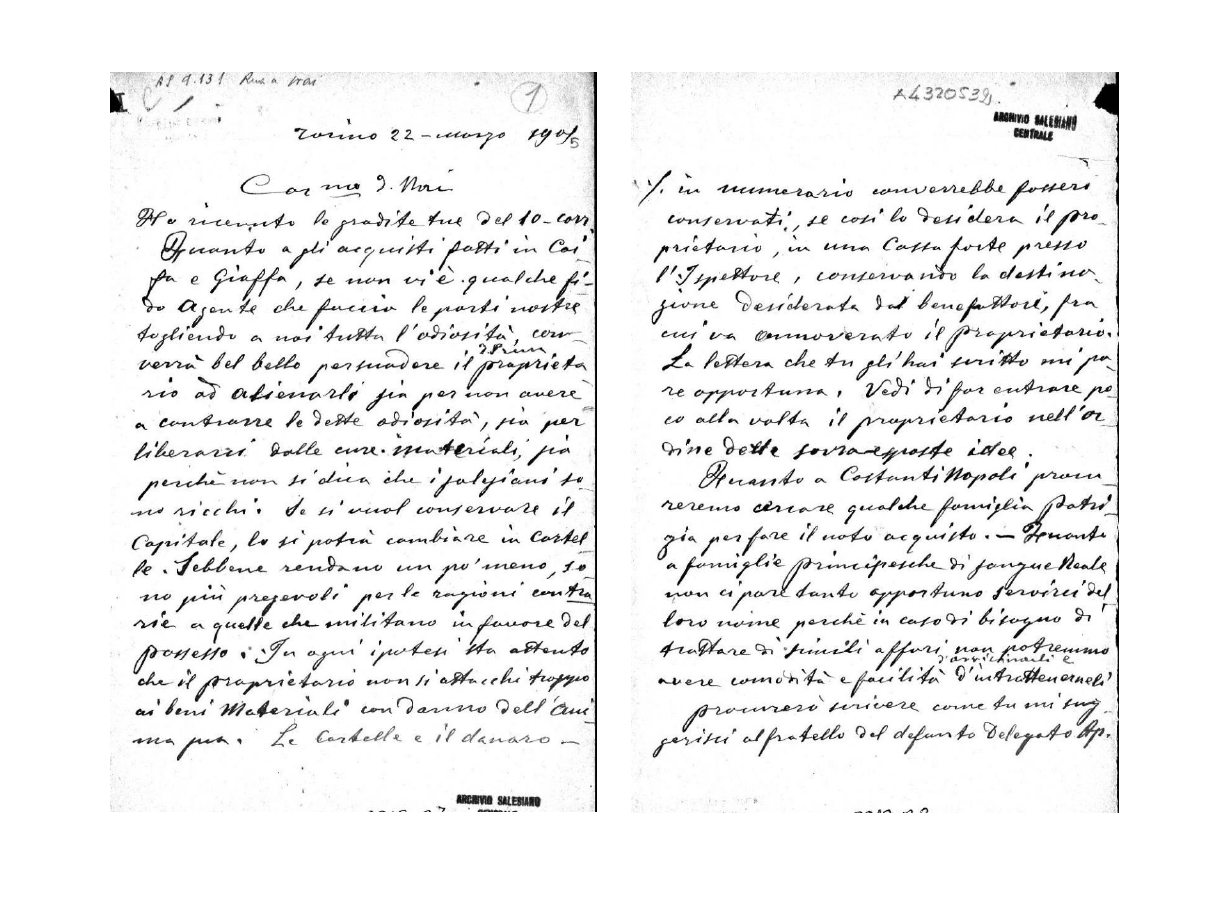 AS 9.131 Rua a Nai
1
Torino 22 - marzo 1905
Car.mo D. Nai
Ho ricevuto le gradite tue del 10 - corr.
Quanto agli acquisti fatti in Cai-
fa e Giaffa, se non vi è qualche fi-
do Agente che faccia le parti nostre
togliendo a noi tutta l'odiosità, con-
verrà bel bello persuadere il proprieta-
rio ad alienarli sia per non avere
a contrarre le dette odiosità, sia per
liberarsi dalle cure materiali, sia
perchè non si dica che i salesiani so-
no ricchi. Se si vuol conservare il
Capitale, lo si potrà cambiare in cartel-
le. Sebbene rendano un po' meno, so-
no più pregevoli per le ragioni contra-
rie a quelle che militano in favore del
possesso. In ogni ipotesi sta attento
che il proprietario non si attacchi troppo
ai beni Materiali con danno dell'ani-
ma sua. Le Cartelle e il danaro -
ARCHIVIO SALESIANO
CENTRALE
A4320539
ARCHIVIO SALESIANO
CENTRALE
/. in numerario converrebbe fossero
conservati, se così lo desidera il pro-
prietario, in una Cassa forte presso
l'Ispettore, conservando la destina-
zione desiderata dai benefattori, fra
cui va annoverato il proprietario.
La lettera che tu gli hai scritto mi pa-
re opportuna. Vedi di far entrare po-
co alla volta il proprietario nell'or-
dine delle sovraesposte idee.
Quanto a Costantinopoli procu-
reremo cercare qualche famiglia patri-
zia per fare il noto acquisto. - Quanto
a famiglie principesche di sangue Reale
non ci pare tanto opportuno servirci del
loro nome perchè in caso di bisogno di
trattare di simili affari non potremmo
d'avvicinarli e
avere comodità e facilità d'intrattenerneli
Procurerò scrivere come tu mi sug-
gerisci al fratello del defunto Delegato Ap.